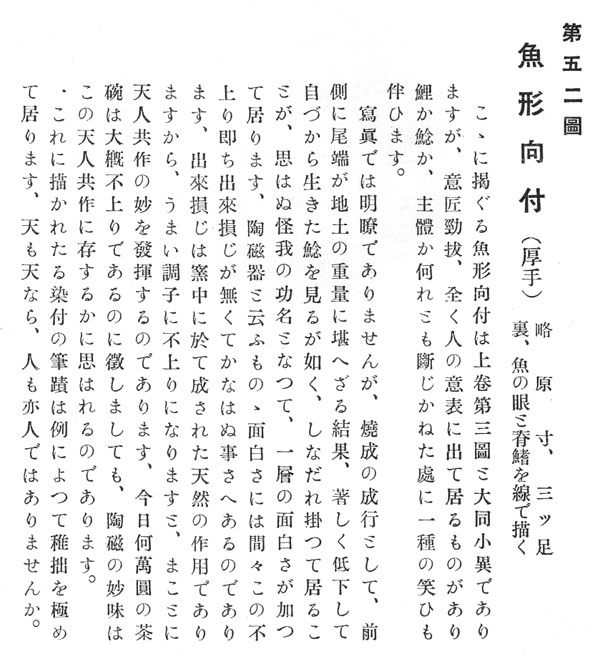 第五二圖
魚形向付(厚手)
略原寸、三ッ足
裏、魚の眼と脊鰭を線で描く
こゝに揭ぐる魚形向付は上卷第三圖と大同小異であり
ますが、意匠勁拔、全く人の意表に出て居るものがあり
鯉か鯰か、主體か何れとも斷じかねた處に一種の笑ひも
伴ひます。
寫眞では明瞭でありませんが、燒成の成行として、前
側に尾端が地土の重量に堪へざる結果、著しく低下して
自づから生きた鯰を見るが如く、しなだれ掛つて居るこ
とが、思はぬ怪我の功名となつて、一層の面白さが加つ
て居ります、陶磁器と云ふものゝ面白さには間々この不
上り即ち出來損じが無くてかなはぬ事さへあるのであり
ます、出來損じは窯中に於て成された天然の作用であり
ますから、うまい調子に不上りになりますと、まことに
天人共作の妙を發揮するのであります、今日何萬圓の茶
碗は大槪不上りであるのに徵しましても、陶磁の妙味は
この天人共作に存するかに思はれるのであります。
・これに描かれたる染付の筆蹟は例によつて稚拙を極め
て居ります、天も天なら、人も亦人ではありませんか。